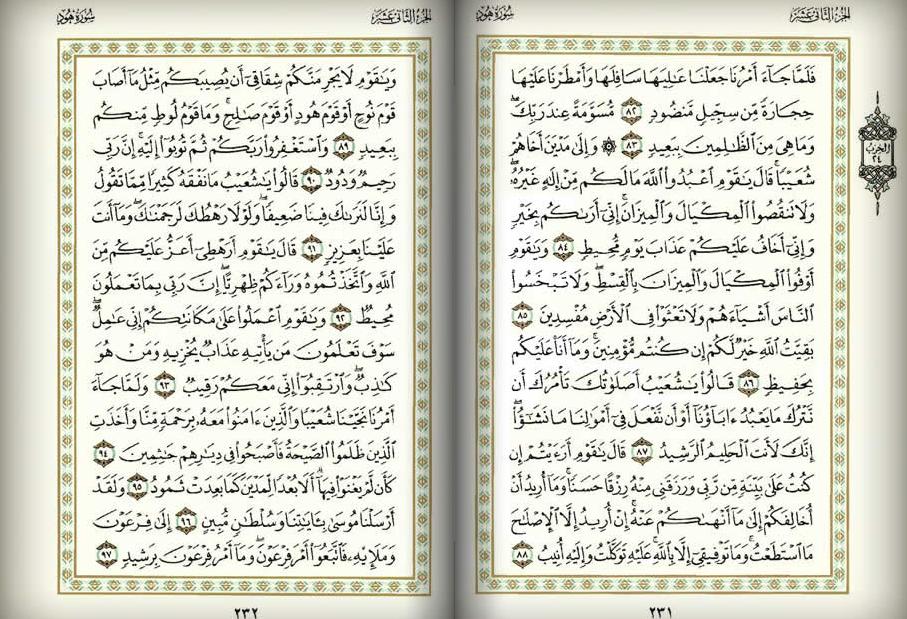 الجزء الثاني عشر
سورة هود
فَلَمَّا جَآءَ أَمْرُنَا جَعَلْنَا عَٰلِيَهَا سَافِلَهَا وَأَمْطَرْنَا عَلَيْهَا
حِجَارَةً مِّن سِجِّيلٍ مَّنضُودٍ ٨٢ مُّسَوَّمَةً عِندَ رَبِّكَۖ
وَمَا هِىَ مِنَ ٱلظَّٰلِمِينَ بِبَعِيدٍ ٨٣ ۞ وَإِلَىٰ مَدْيَنَ أَخَاهُمْ
شُعَيْبًاۚ قَالَ يَٰقَوْمِ ٱعْبُدُوا۟ ٱللَّهَ مَا لَكُم مِّنْ إِلَٰهٍ غَيْرُهُۥۖ
وَلَا تَنقُصُوا۟ ٱلْمِكْيَالَ وَٱلْمِيزَانَۚ إِنِّىٓ أَرَىٰكُم بِخَيْرٍ
وَإِنِّىٓ أَخَافُ عَلَيْكُمْ عَذَابَ يَوْمٍ مُّحِيطٍ ٨٤ وَيَٰقَوْمِ
أَوْفُوا۟ ٱلْمِكْيَالَ وَٱلْمِيزَانَ بِٱلْقِسْطِۖ وَلَا تَبْخَسُوا۟
ٱلنَّاسَ أَشْيَآءَهُمْ وَلَا تَعْثَوْا۟ فِى ٱلْأَرْضِ مُفْسِدِينَ ٨٥
بَقِيَّتُ ٱللَّهِ خَيْرٌ لَّكُمْ إِن كُنتُم مُّؤْمِنِينَۚ وَمَآ أَنَا۠ عَلَيْكُم
بِحَفِيظٍ ٨٦ قَالُوا۟ يَٰشُعَيْبُ أَصَلَوٰتُكَ تَأْمُرُكَ أَن
نَّتْرُكَ مَا يَعْبُدُ ءَابَآؤُنَآ أَوْ أَن نَّفْعَلَ فِىٓ أَمْوَٰلِنَا مَا نَشَٰٓؤُا۟ۖ
إِنَّكَ لَأَنتَ ٱلْحَلِيمُ ٱلرَّشِيدُ ٨٧ قَالَ يَٰقَوْمِ أَرَءَيْتُمْ إِن
كُنتُ عَلَىٰ بَيِّنَةٍ مِّن رَّبِّى وَرَزَقَنِى مِنْهُ رِزْقًا حَسَنًاۚ وَمَآ أُرِيدُ أَنْ
أُخَالِفَكُمْ إِلَىٰ مَآ أَنْهَىٰكُمْ عَنْهُۚ إِنْ أُرِيدُ إِلَّا ٱلْإِصْلَٰحَ
مَا ٱسْتَطَعْتُۚ وَمَا تَوْفِيقِىٓ إِلَّا بِٱللَّهِۚ عَلَيْهِ تَوَكَّلْتُ وَإِلَيْهِ أُنِيبُ ٨٨
٢٣١
الحزب
٢٤
الجزء الثاني عشر
سورة هود
وَيَٰقَوْمِ لَا يَجْرِمَنَّكُمْ شِقَاقِىٓ أَن يُصِيبَكُم مِّثْلُ مَآ أَصَابَ
قَوْمَ نُوحٍ أَوْ قَوْمَ هُودٍ أَوْ قَوْمَ صَٰلِحٍۚ وَمَا قَوْمُ لُوطٍ مِّنكُم
بِبَعِيدٍ ٨٩ وَٱسْتَغْفِرُوا۟ رَبَّكُمْ ثُمَّ تُوبُوٓا۟ إِلَيْهِۚ إِنَّ رَبِّى
رَحِيمٌ وَدُودٌ ٩٠ قَالُوا۟ يَٰشُعَيْبُ مَا نَفْقَهُ كَثِيرًا مِّمَّا تَقُولُ
وَإِنَّا لَنَرَىٰكَ فِينَا ضَعِيفًاۖ وَلَوْلَا رَهْطُكَ لَرَجَمْنَٰكَۖ وَمَآ أَنتَ
عَلَيْنَا بِعَزِيزٍ ٩١ قَالَ يَٰقَوْمِ أَرَهْطِىٓ أَعَزُّ عَلَيْكُم مِّنَ
ٱللَّهِ وَٱتَّخَذْتُمُوهُ وَرَآءَكُمْ ظِهْرِيًّاۖ إِنَّ رَبِّى بِمَا تَعْمَلُونَ
مُحِيطٌ ٩٢ وَيَٰقَوْمِ ٱعْمَلُوا۟ عَلَىٰ مَكَانَتِكُمْ إِنِّى عَٰمِلٌۖ
سَوْفَ تَعْلَمُونَ مَن يَأْتِيهِ عَذَابٌ يُخْزِيهِ وَمَنْ هُوَ
كَٰذِبٌۖ وَٱرْتَقِبُوٓا۟ إِنِّى مَعَكُمْ رَقِيبٌ ٩٣ وَلَمَّا جَآءَ
أَمْرُنَا نَجَّيْنَا شُعَيْبًا وَٱلَّذِينَ ءَامَنُوا۟ مَعَهُۥ بِرَحْمَةٍ مِّنَّا وَأَخَذَتِ
ٱلَّذِينَ ظَلَمُوا۟ ٱلصَّيْحَةُ فَأَصْبَحُوا۟ فِى دِيَٰرِهِمْ جَٰثِمِينَ ٩٤
كَأَن لَّمْ يَغْنَوْا۟ فِيهَآۗ أَلَا بُعْدًا لِّمَدْيَنَ كَمَا بَعِدَتْ ثَمُودُ ٩٥ وَلَقَدْ
أَرْسَلْنَا مُوسَىٰ بِـَٔايَٰتِنَا وَسُلْطَٰنٍ مُّبِينٍ ٩٦ إِلَىٰ فِرْعَوْنَ
وَمَلَإِي۟هِۦ فَٱتَّبَعُوٓا۟ أَمْرَ فِرْعَوْنَۖ وَمَآ أَمْرُ فِرْعَوْنَ بِرَشِيدٍ ٩٧
٢٣٢